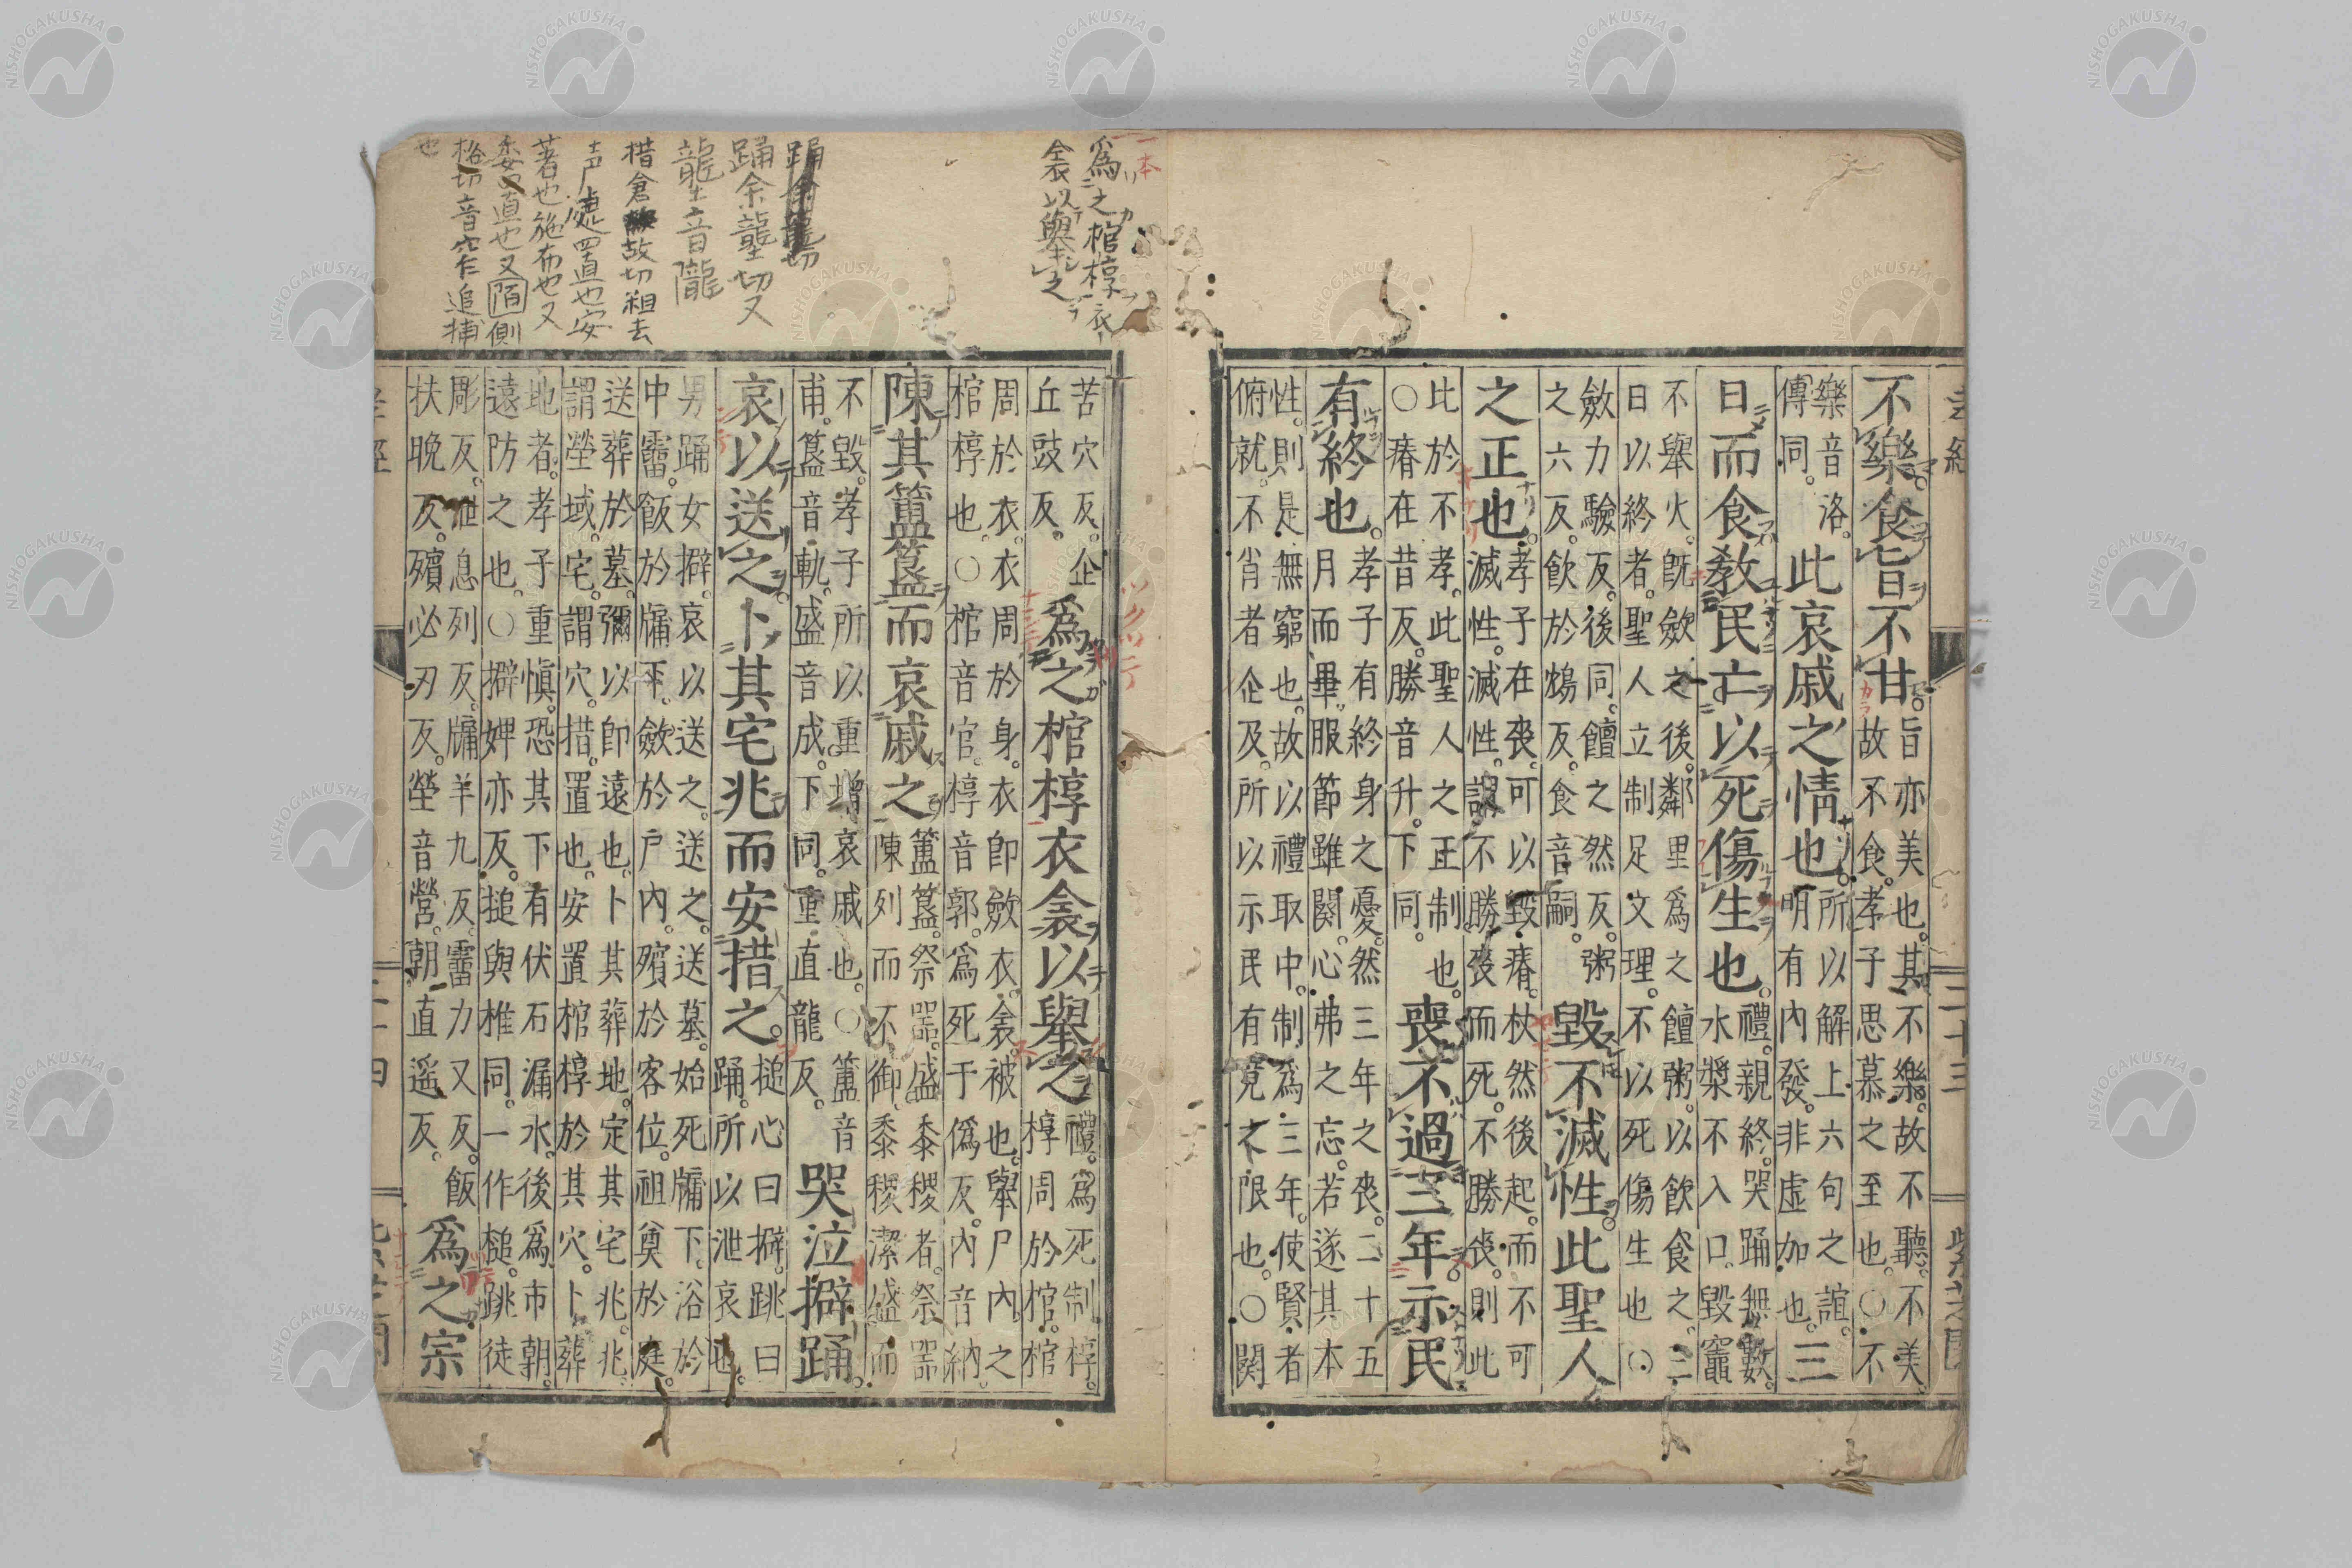 不樂。食旨不甘。
旨亦美也。其不樂。故不聽。不美。
故不食。孝子思慕之至也。〇不
樂音洛。
傳同。
此哀戚之情也。
所以解上六句之誼。
明有內發。非虛加也。
三
日而食。教民亡以死傷生也。
禮。親終。哭踊無數。
水漿不入口。毀竈
不舉火。旣斂之後。鄰里爲之饘粥。以飮食之。三
日以終者。聖人立制足文理。不以死傷生也。〇
斂力驗反。後同。饘之然反。粥
之六反。飮於鴆反。食音嗣。
毀不滅性。此聖人
之正也。
孝子在喪。可以毀瘠。杖然後起。而不可
滅性。滅性。謂不勝喪而死。不勝喪。則此
此於不孝。此聖人之正制也。
〇瘠在昔反。勝音升。下同。
喪不過三年。示民
有終也。
孝子有終身之憂。然三年之喪。二十五
月而畢。服節雖闋。心弗之忘。若遂其本
性。則是無窮也。故以禮取中。制爲三年。使賢者
俯就。不肖者企及。所以示民有竟之限也。〇闋
一本
爲之棺椁衣
衾以舉之
苦穴反。企
丘豉反。
爲之棺椁衣衾以舉之
禮。爲死制椁。
椁周於棺。棺
周於衣。衣周於身。衣卽斂衣。衾被也。舉尸內之
棺椁也。〇棺音官。椁音郭。爲死于僞反。內音納。
陳其簠簋而哀戚之
簠簋。祭器。盛黍稷者。祭器
陳列而不御。黍稷潔盛而
不毀。孝子所以重增哀戚也。〇簠音
甫。簋音軌。盛音成。下同。重直龍反。
哭泣擗踊。
哀以送之。卜其宅兆而安措之。
搥心曰擗。跳曰
踊。所以泄哀也。
男踊女擗。哀以送之。送之。送墓。始死牖下。浴於
中霤。飯於牖下。斂於戶內。殯於客位。祖奠於庭。
送葬於墓。彌以卽遠也。卜其葬地。定其宅兆。兆。
謂塋域。宅。謂穴。措。置也。安置棺椁於其穴。卜葬
地者。孝子重愼。恐其下有伏石漏水。後爲市朝。
遠防之也。〇擗婢亦反。搥與椎同。一作槌。跳徒
彫反。泄息列反。牖羊九反。霤力又反。飯
扶晚反。殯必刃反。塋音營。朝直遥反。
爲之宗
踊余隴切又
壟音隴
措倉故切粗去
声處置也安
著也施布也又
委置也又陌側
格切音窄追捕
也